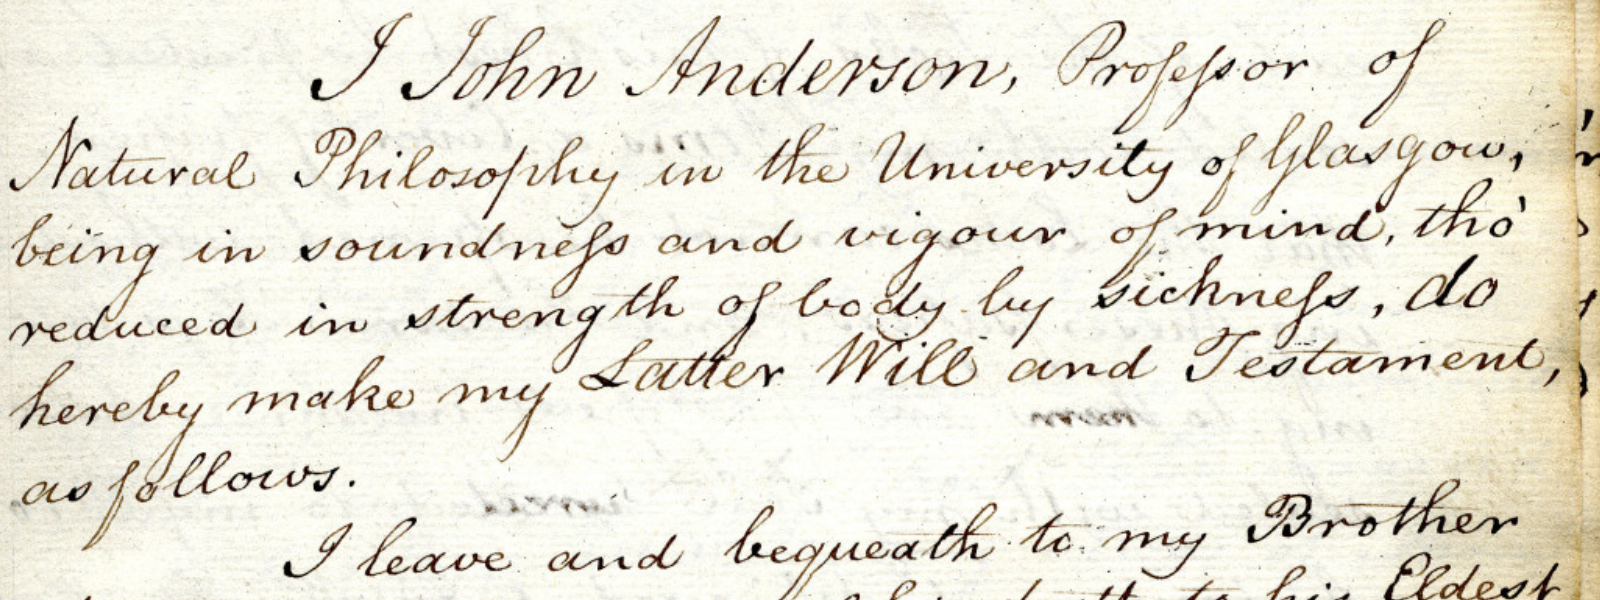 I John Anderson, Profeſsor of
Natural Philosophy in the University of Glasgow,
being in soundneſs and vigour of mind, tho'
reduced in strength of body by sickneſs, do
hereby make my Latter Will and Testament,
as follows.
I leave and bequeath to my Brother
to his Eldest